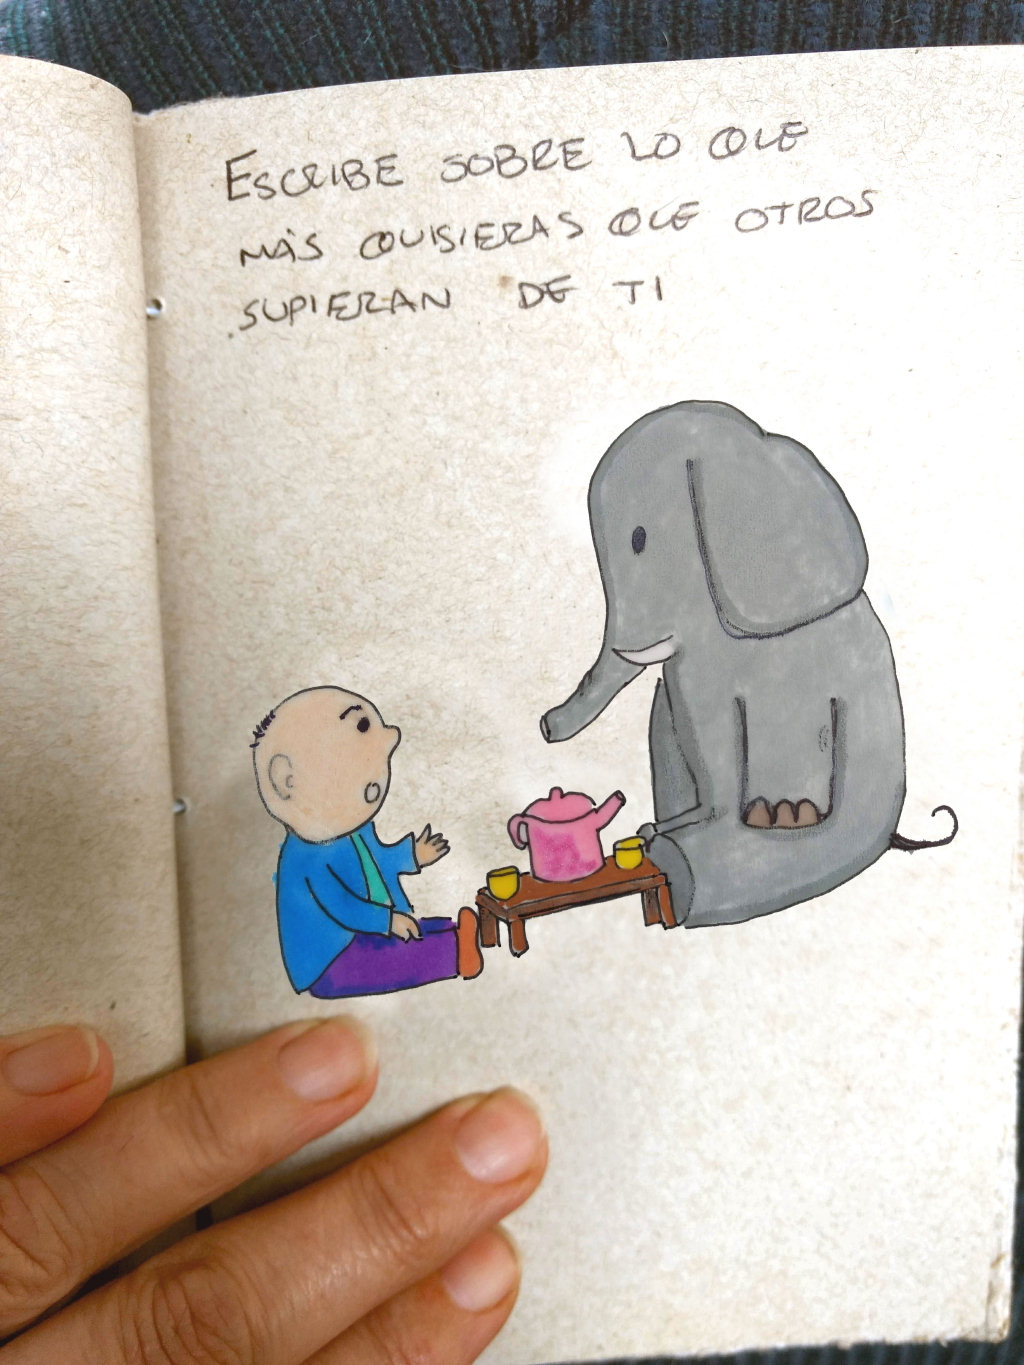 ESCRIBE SOBRE LO QUE
MÁS QUISIERAS QUE OTROS
SUPIERAN DE TI